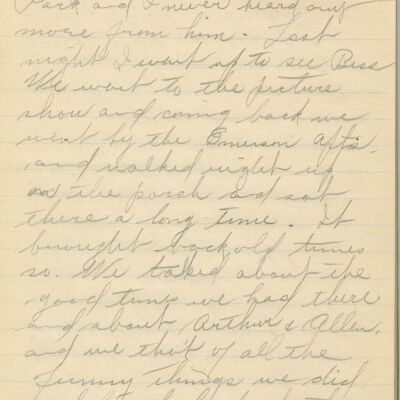 Park and I never heard any
more from him. Last
night I went up to see Bess
We went to the picture
show and coming back we
went by the Emerson Apts.
and walked right up
on the porch and sat
there a long time. It
brought back old times
so. We talked about the
good times we had there
and about Arthur & Allen.
and we tho't of all the
funny things we did